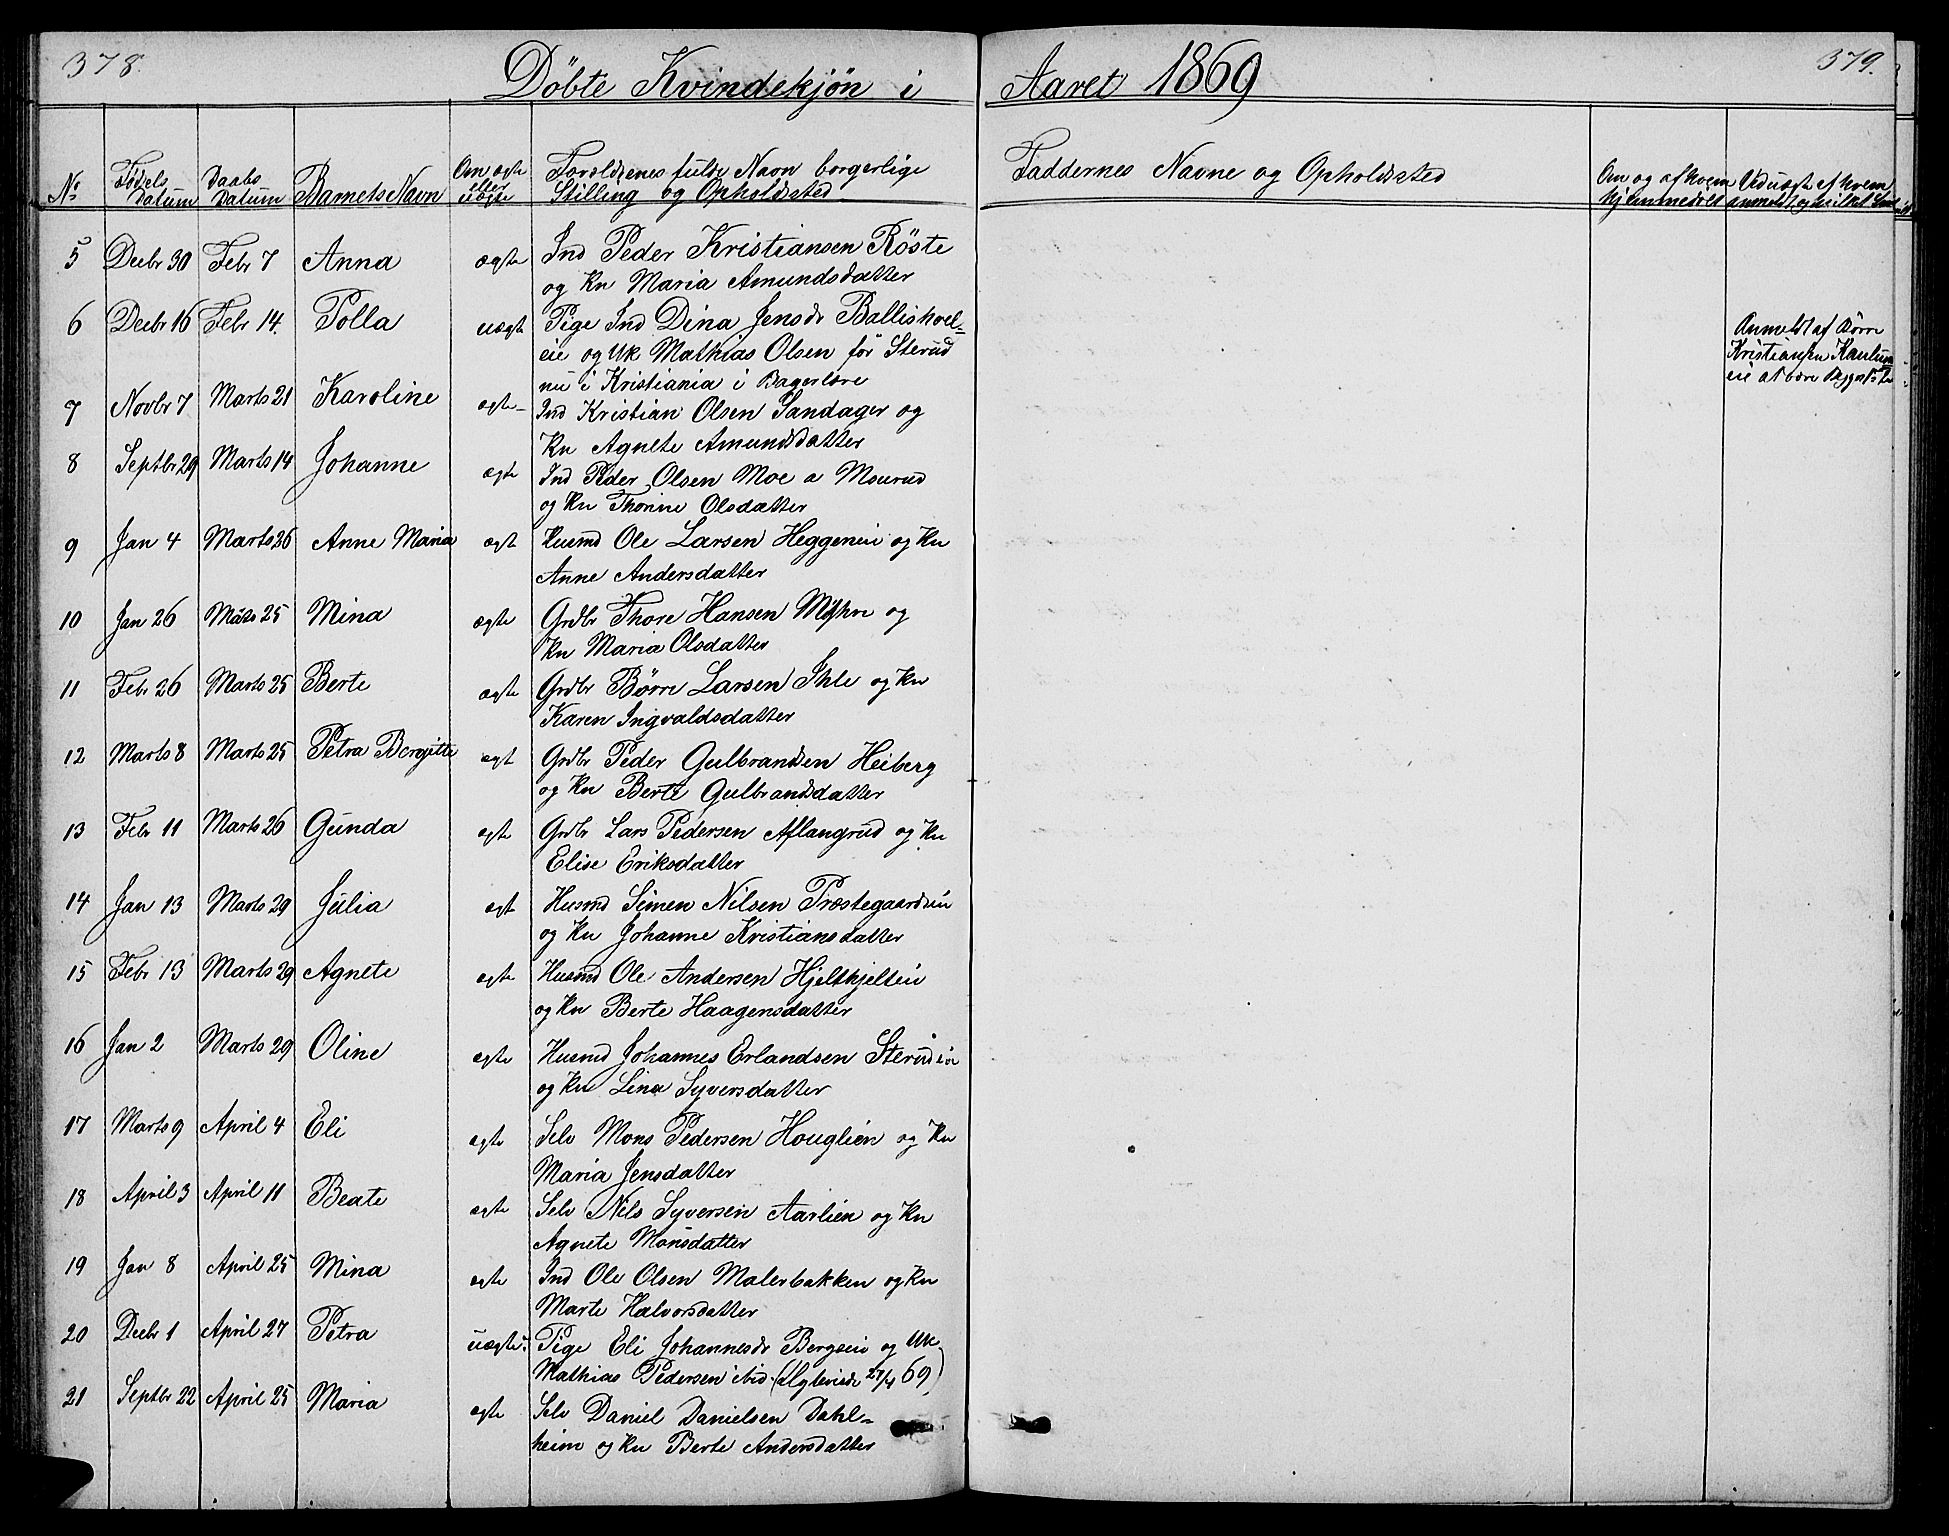 378.
Döbte Kvindekjøn i Aaret 1869
379.
No Fødsels Datum Daabs Datum Barnets Navn Om ægte eller uægte Foreldrenes fulde Navn borgerlige Stilling og Opholdssted Faddernes Navne og Opholdssted Om og af hvem hjemmedöbt
5 Decbr 30 Febr 7 Anna ægte Ind Peder Kristiansen Röste
og Kn Maria Amundsdatter
6 Decbr 16 Febr 14. Polla uægte Pige Ind Dina Jensdr Ballishol=
eie og Uk Mathias Olsen för Sterud
nu i Kristiania i Bagerlære
Anmeldt af Börre
Kristiansen
eie at være
7 Novbr 7 Marts 21 Karoline ægte Ind Kristian Olsen Sandager og
Kn Agnete Amundsdatter
8 Septbr 29 Marts 14 Johanne ægte Ind Peder Olsen Moe a Mourud
og Kn Thorine Olsdatter
9 Jan 4 Marts 26 Anne Maria ægt Husmd Ole Larsen Heggeneie og Kn
Anne Andersdatter
10 Jan 26 Mats 25 Mina ægte Grdbr Thore Hansen og
Kn Maria Olsdatter
11 Febr 26 Marts 25 Berte ægte Grdbr Børre Larsen Ihle og Kn
Karen Ingvaldsdatter
12 Marts 8 Marts 25 Petra Bergitte ægt Grdbr Peder Gulbrandsen Heiberg
og Kn Berte Gulbrandsdatter
13 Febr 11 Marts 26 Gunda ægte Grdbr Lars Pedersen Aflangrud og Kn
Elise Eriksdatter
14 Jan 13 Marts 29 Julia ægt Husmd Simen Nilsen Præstegaardseie
og Kn Johanne Kristiansdatter
15 Febr 13 Marts 29 Agnete ægte Husmd Ole Andersen Hjeltkjelteie
og Kn Berte Haagensdatter
16 Jan 2 Marts 29 Oline ægte Husmd Johannes Erlandsen Sterudeie
og Kn Lina Syversdatter
17 Marts 9 April 4 Eli ægte Selv Mons Pedersen Houglien og Kn
Maria Jensdatter
18 April 3 April 11 Beate ægte Selv Nils Syversen Aarlien og Kn
Agnete Monsdatter
19 Jan 8 April 25 Mina ægte Ind Ole Olsen Malerbakken og Kn
Marte Halvorsdatter
20 Decbr 1 April 27 Petra uægte Pige Eli Johannesdr Bergseie og Uk
Mathias Pedersen ibid (Ægteviede 27/4 69)
21 Septbr 22 April 25 Maria ægte Selv Daniel Danielsen Dahl=
heim og Kn Berte Andersdatter